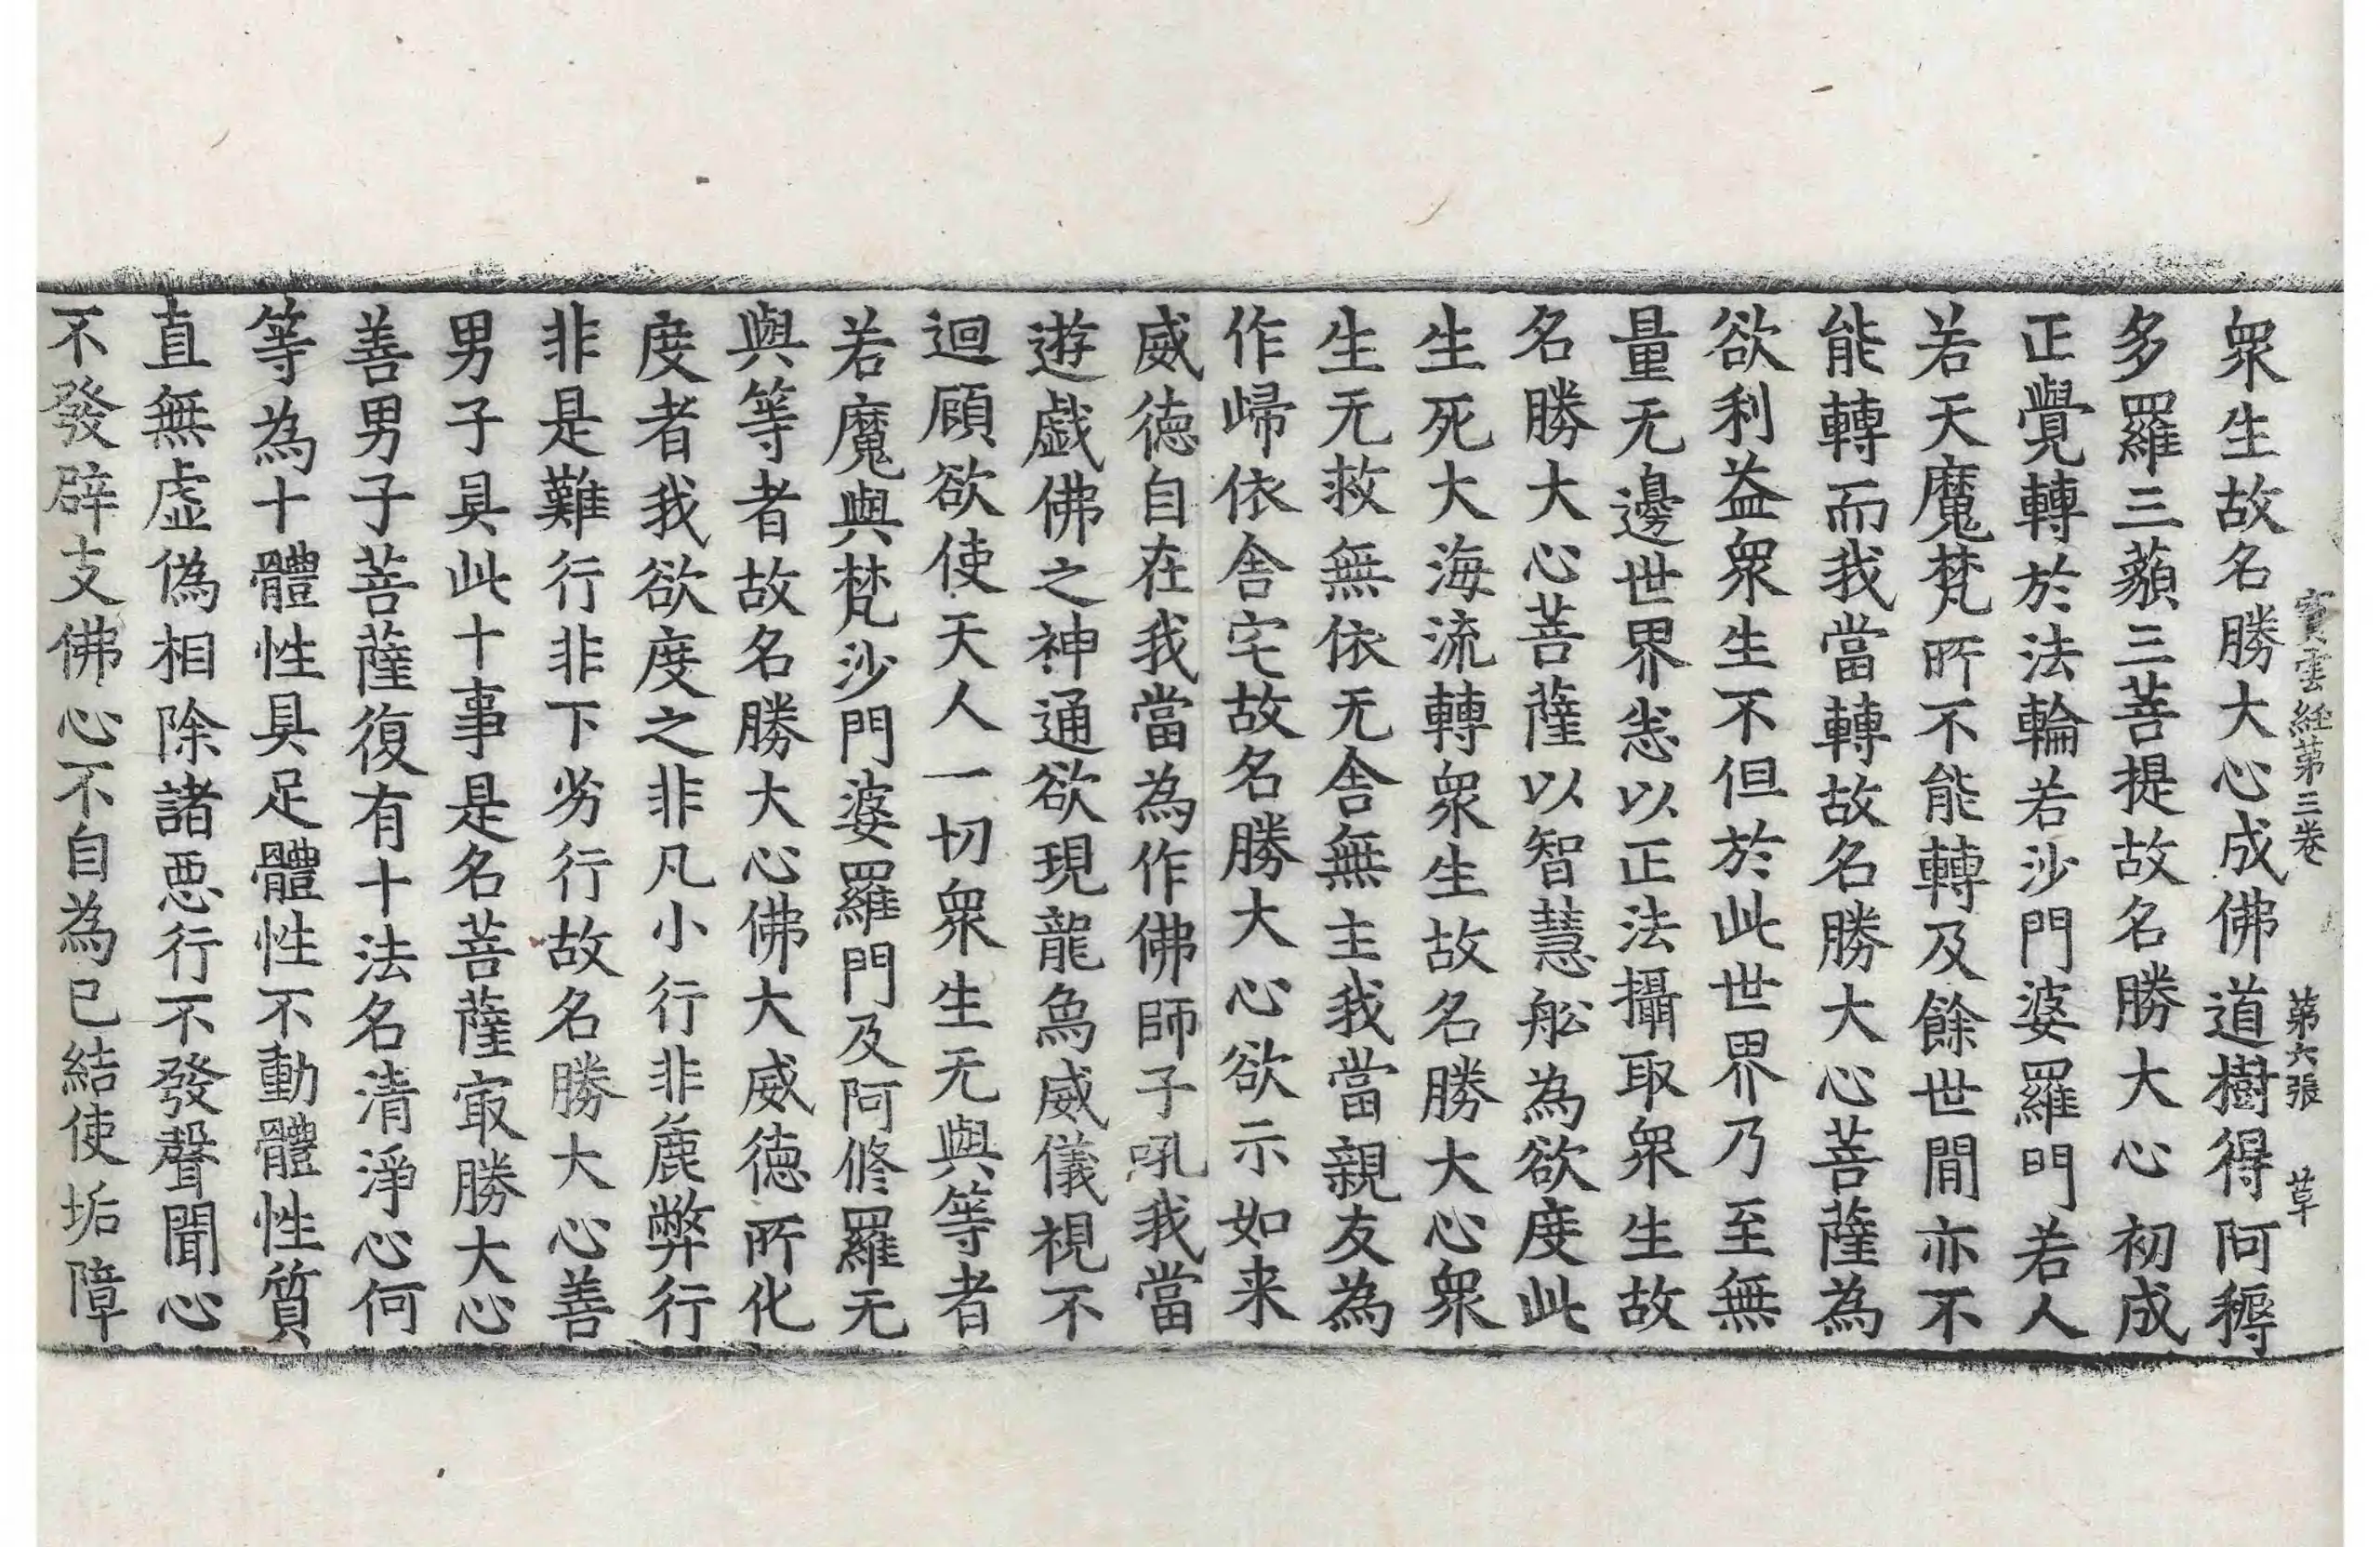 寳雲經第三卷　第六張　草
衆生故名勝大心成佛道樹得阿耨
多羅三藐三菩提故名勝大心初成
正覺轉於法輪若沙門婆羅門若人
若天魔梵所不能轉及餘世間亦不
能轉而我當轉故名勝大心菩薩為
欲利益衆生不但於此世界乃至無
量无邊世界悉以正法攝取衆生故
名勝大心菩薩以智慧舩為欲度此
生死大海流轉衆生故名勝大心衆
生无救無依无舍無主我當親友為
作歸依舍宅故名勝大心欲示如来
威德自在我當為作佛師子吼我當
遊戯佛之神通欲現龍𤉯威儀視不
迴顧欲使天人一切衆生无與等者
若魔與梵沙門婆羅門及阿脩羅无
與等者故名勝大心佛大威德所化
度者我欲度之非凡小行非麁弊行
非是難行非下劣行故名勝大心善
男子具此十事是名菩薩㝡勝大心
善男子菩薩復有十法名清淨心何
等為十體性具足體性不動體性質
直無虚偽相除諸惡行不發聲聞心
不發辟支佛心不自為已結使垢障